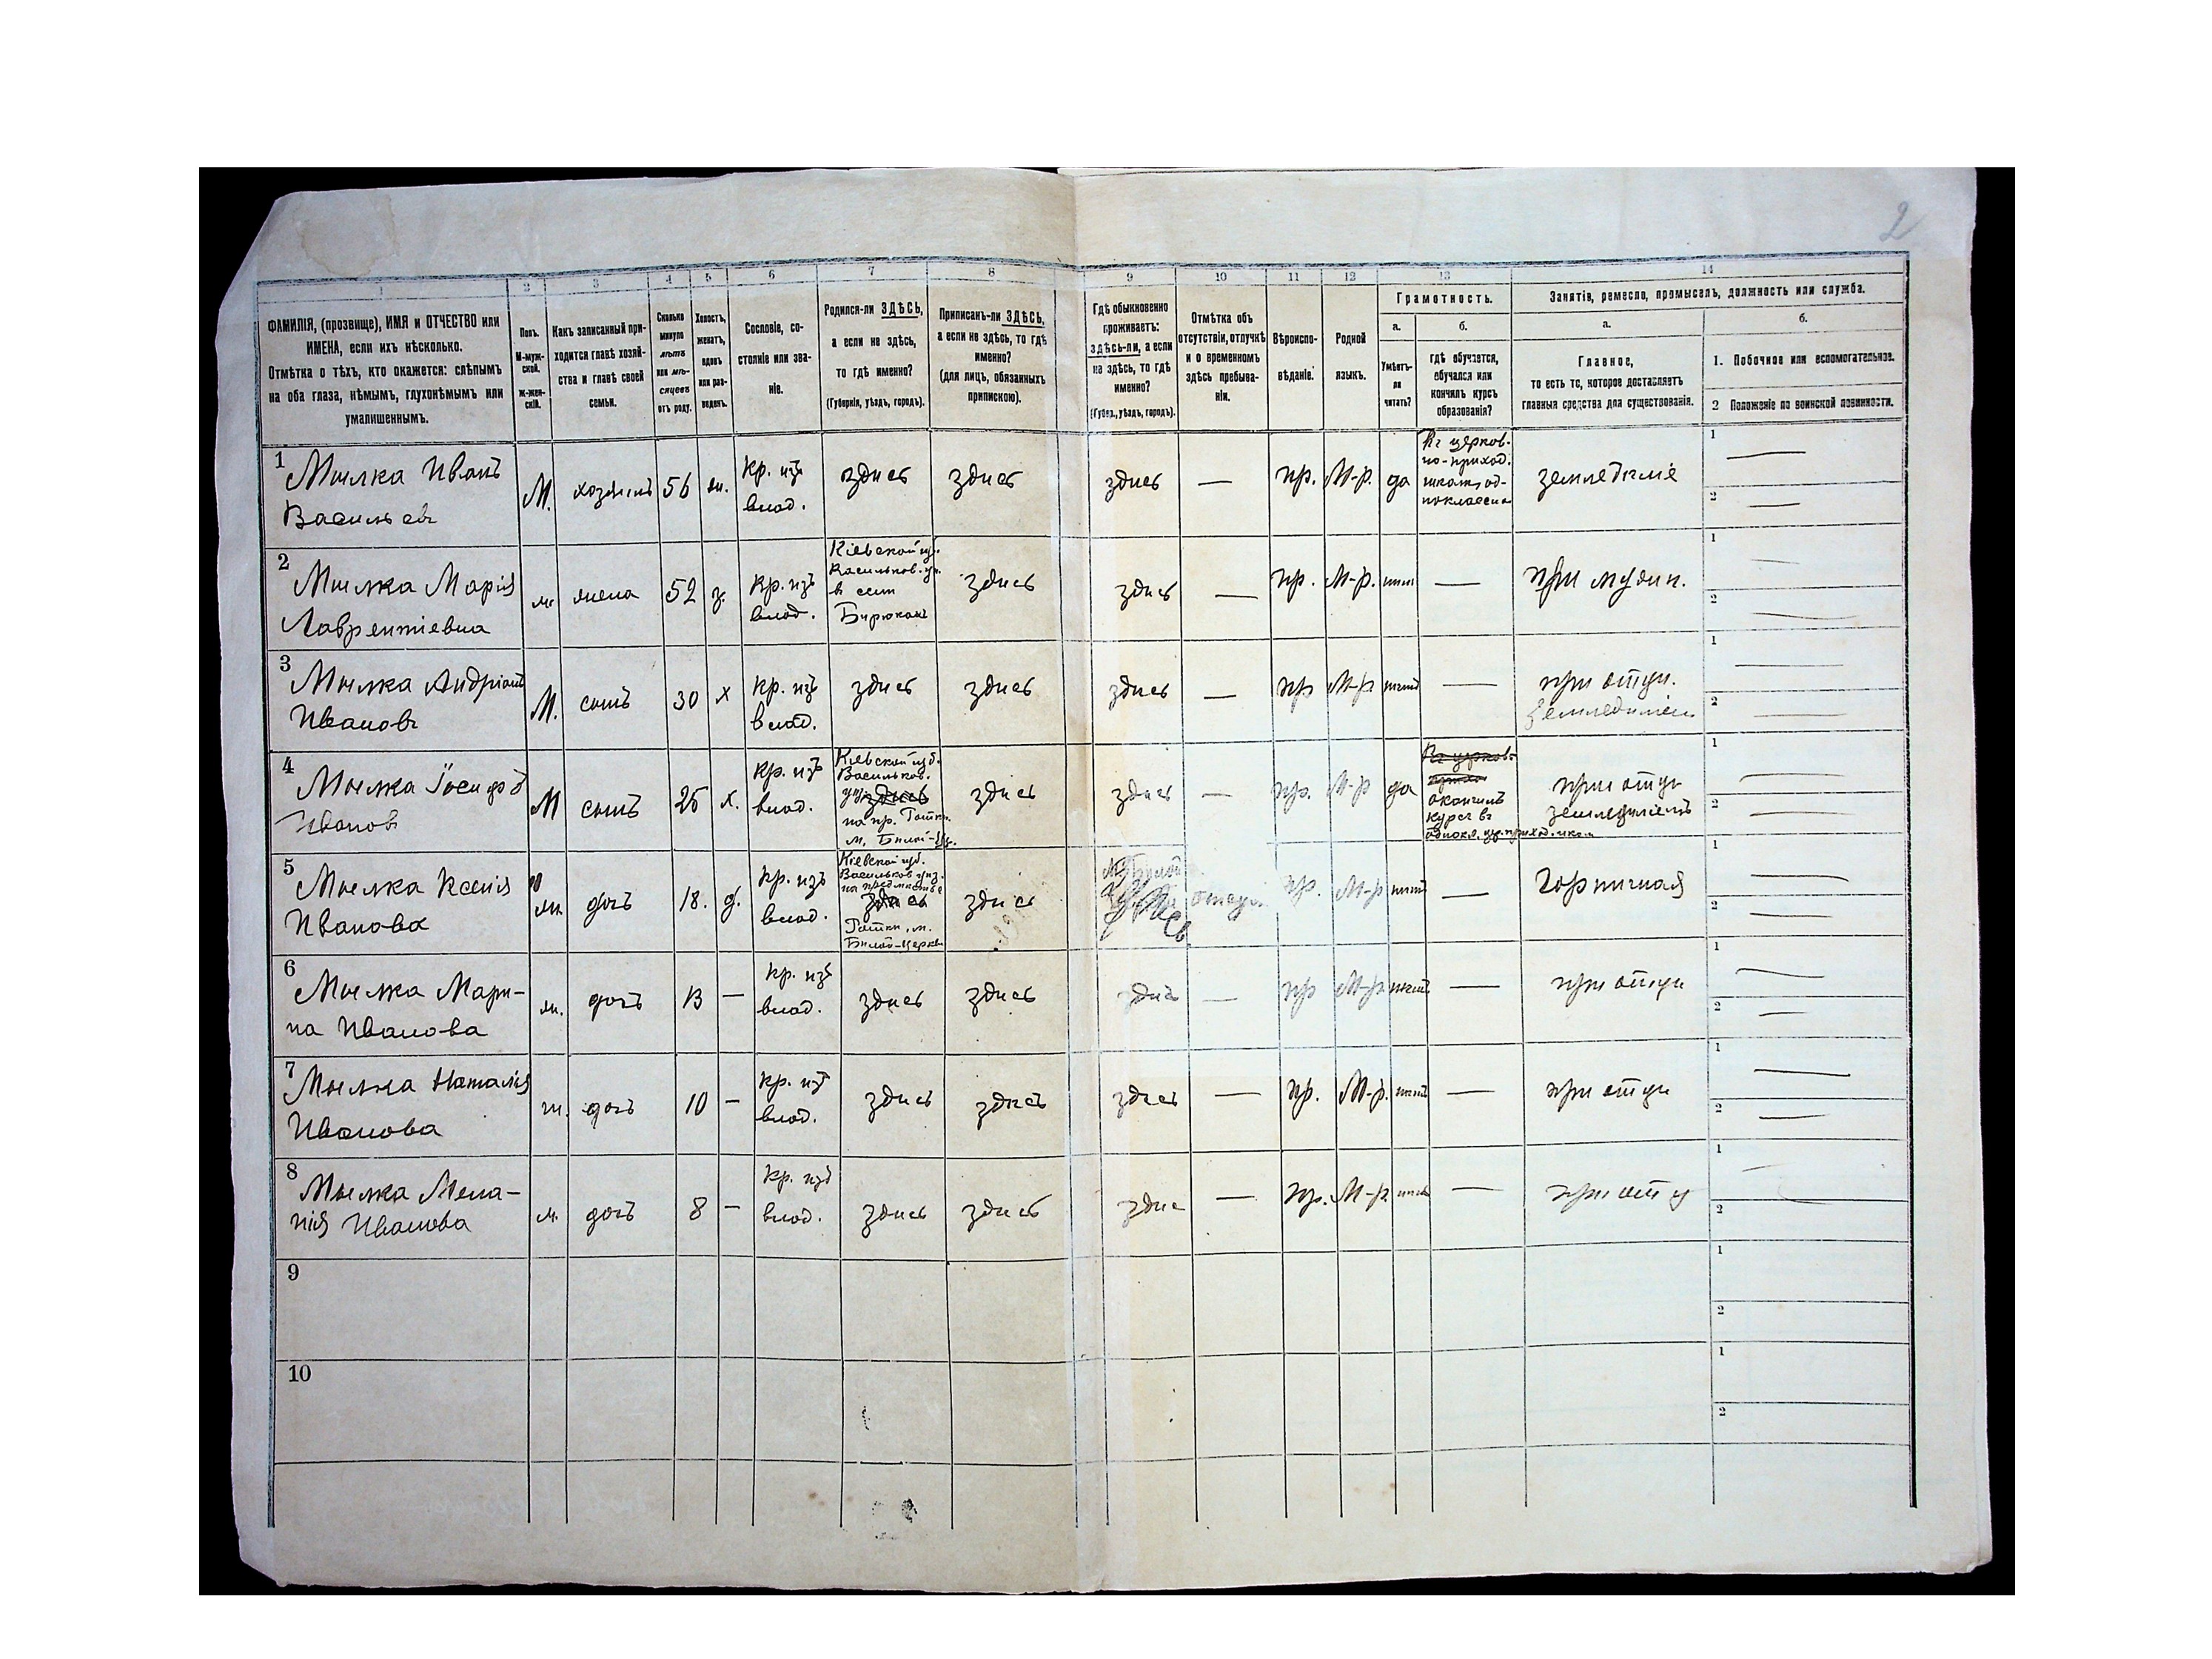 2
1 2 3 4 5 6 7 8 9 10 11 12 13 14
ФАМИЛІЯ, (прозвище), ИМЯ и ОТЧЕСТВО или
ИМЕНА, если ихъ нѣсколько.
Отмѣтка о тѣхъ, кто окажется: слѣпымъ
на оба глаза, нѣмымъ, глухонѣмымъ или
умалишеннымъ.
Полъ.
М-муж-
ской.
Ж-жен-
скій.
Какъ записанный при-
ходится главѣ хозяй-
ства и главѣ своей
семьи.
Сколько
минуло
лѣтъ
или мѣ-
сяцевъ
отъ роду.
Холостъ,
женатъ,
вдовъ
или раз-
веденъ.
Сословіе, со-
стояніе или зва-
ніе.
Родился-ли ЗДѢСЬ,
а если не здѣсь,
то гдѣ именно?
(Губернія, уѣздъ, городъ).
Приписанъ-ли ЗДѢСЬ,
а если не здѣсь, то гдѣ
именно?
(для лицъ, обязанныхъ
припискою).
Гдѣ обыкновенно
проживаетъ:
здѣсь-ли, а если
не здѣсь, то гдѣ
именно?
(Губер., уѣздъ, городъ).
Отмѣтка объ
отсутствіи, отлучкѣ
и о временномъ
здѣсь пребыва-
ніи.
Вѣроиспо-
вѣданіе.
Родной
языкъ.
Грамотность.
а.
Умѣетъ-
ли
читать?
б.
гдѣ обучается,
обучался или
кончилъ курсъ
образованія?
Занятіе, ремесло, промыселъ, должность или служба.
а.
Главное,
то есть то, которое доставляетъ
главныя средства для существованія.
б.
1. Побочное или вспомогательное.
2 Положеніе по воинской повинности.
1 Мылка Иванъ
Васильевъ
М. хозяинъ 56 ж. Кр. изъ
влад. здѣсь здѣсь здѣсь — пр. М-р. да
Въ церков-
но-приход.
школѣ од-
ноклассн.
земледѣліе
1 —
2 —
2 Мылка Марія
Лаврентіевна
ж. жена 52 з. Кр. изъ
влад.
Кіевской губ.
Васильков. уѣз.
въ селѣ
Бирюкахъ
здѣсь здѣсь — пр. М-р. нѣтъ — при мужѣ.
1 —
2 —
3 Мылка Андріанъ
Ивановъ
М. сынъ 30 х Кр. изъ
влад. здѣсь здѣсь здѣсь — пр М-р нѣтъ — при отцѣ.
земледѣліе
1 —
2 —
4 Мылка Іосифъ
Ивановъ
М сынъ 25 х. Кр. изъ
влад.
Кіевской губ.
Васильков.
уѣз. здѣсь
на пр.
м. Бѣлой-Це.
здѣсь здѣсь — пр. М-р да
Въ церков-
окончилъ
курсъ въ
однокл. цр. приход. шк.
при отцѣ
земледѣліемъ
1 —
2 —
5 Мылка Ксенія
Иванова
ж. дочь 18. д. Кр. изъ
влад.
Кіевской губ.
Васильков. уѣз.
на предмѣстьѣ
здѣсь
м.
Бѣлой-Церкви
здѣсь пр. М-р нѣтъ — Горничная
1 —
2 —
6 Мылка Мари-
на Иванова
ж. дочь 13 — Кр. изъ
влад. здѣсь здѣсь здѣсь — пр М-р нѣтъ — при отцѣ
1 —
2 —
7 Мылка Наталія
Иванова
ж. дочь 10 — Кр. изъ
влад. здѣсь здѣсь здѣсь — пр. М-р. нѣтъ — при отцѣ
1 —
2 —
8 Мылка Мела-
нія Иванова
ж. дочь 8 — Кр. изъ
влад. здѣсь здѣсь здѣсь — пр. М-р нѣтъ — при отцѣ
1
2
9
1
2
10
1
2